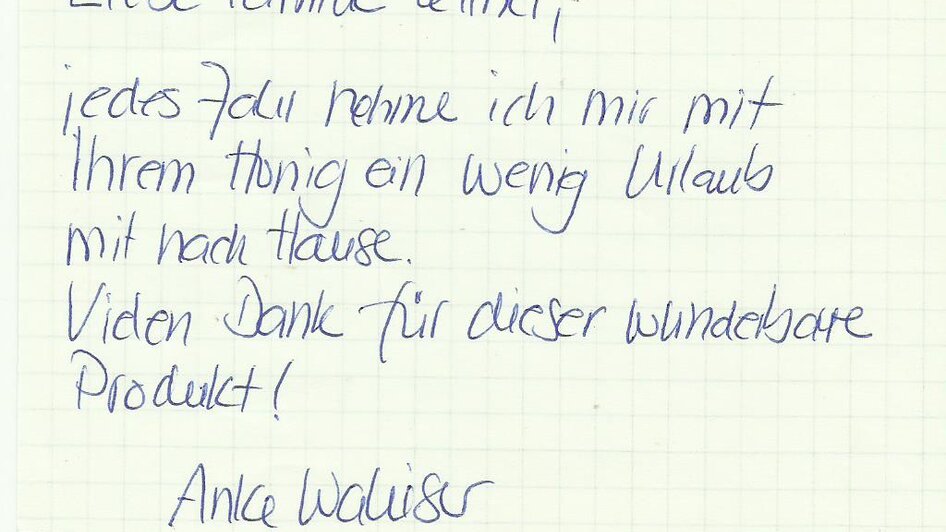 Liebe Familie
jedes Jahr nehme ich mir mit
Ihrem Honig ein wenig Urlaub
mit nach Hause.
Vielen Dank für dieser wunderbare
Produkt!
Anke